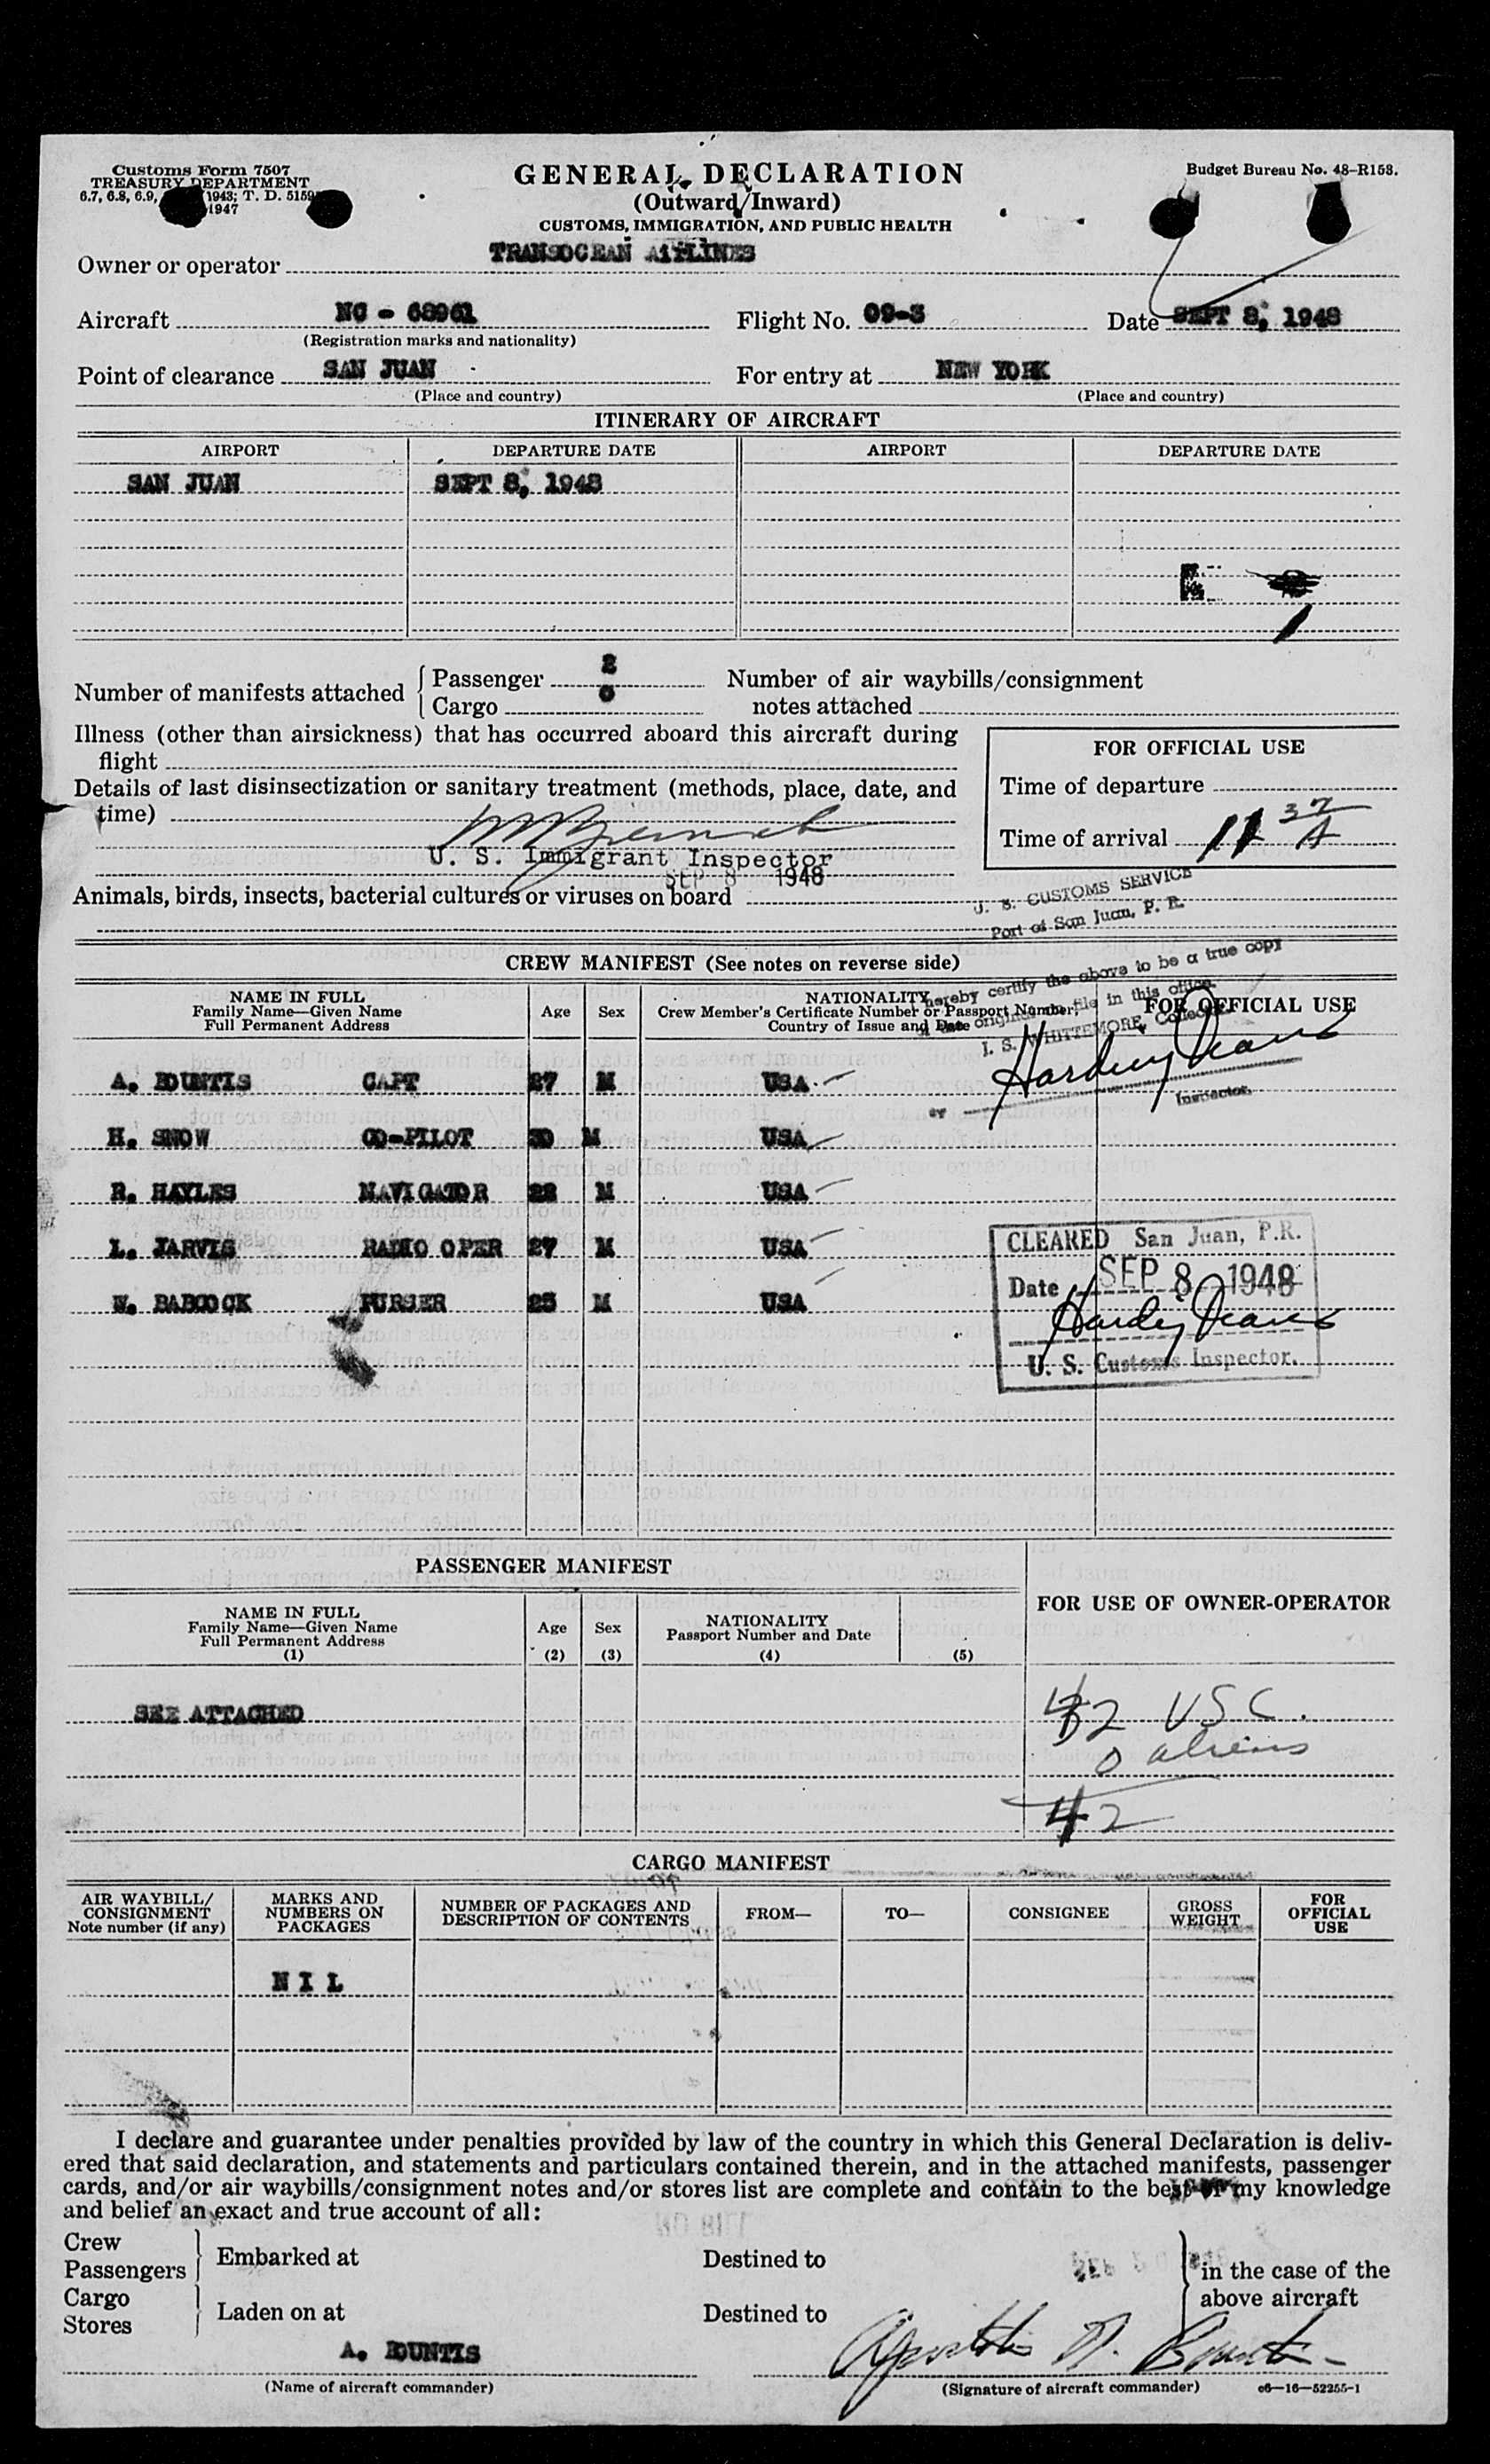 Customs Form 7507
TREASURY DEPARTMENT
6.7, 6.8, 6.9, 1943; T. D. 515
1947
GENERAL DECLARATION
(Outward/Inward)
CUSTOMS, IMMIGRATION, AND PUBLIC HEALTH
Budget Bureau No. 48-R158.
Owner or operator TRANSOCEAN AIRLINES
Aircraft NC - 68961 Flight No. 09-3 Date SEPT 8, 1948
(Registration marks and nationality)
Point of clearance SAN JUAN For entry at NEW YORK
(Place and country) (Place and country)
ITINERARY OF AIRCRAFT
AIRPORT DEPARTURE DATE AIRPORT DEPARTURE DATE
SAN JUAN SEPT 8, 1948
Number of manifests attached Passenger 2
Cargo 0
Number of air waybills/consignment
notes attached
Illness (other than airsickness) that has occurred aboard this aircraft during
flight
Details of last disinsectization or sanitary treatment (methods, place, date, and
time)
FOR OFFICIAL USE
Time of departure
Time of arrival 11 37 A
U. S. Immigrant Inspector
SEP 8 1948
Animals, birds, insects, bacterial cultures or viruses on board
U. S. CUSTOMS SERVICE
Port of San Juan, P. R.
hereby certify the above to be a true copy
original on file in this office.
I. S. WHITTEMORE, Collector
CREW MANIFEST (See notes on reverse side)
NAME IN FULL
Family Name—Given Name
Full Permanent Address
Age Sex
NATIONALITY
Crew Member's Certificate Number or Passport Number,
Country of Issue and Date
FOR OFFICIAL USE
Inspector.
A. BOUNTIS CAPT 27 M USA
H. SNOW CO-PILOT 30 M USA
R. HAYLES NAVIGATOR 22 M USA
L. JARVIS RADIO OPER 27 M USA
W. BABCOCK PURSER 25 M USA
CLEARED San Juan, P.R.
Date SEP 8 1948
U. S. Customs Inspector.
PASSENGER MANIFEST
FOR USE OF OWNER-OPERATOR
NAME IN FULL
Family Name—Given Name
Full Permanent Address
(1)
Age
(2)
Sex
(3)
NATIONALITY
Passport Number and Date
(4) (5)
SEE ATTACHED
42 USC.
0 aliens
42
CARGO MANIFEST
AIR WAYBILL/
CONSIGNMENT
Note number (if any)
MARKS AND
NUMBERS ON
PACKAGES
NUMBER OF PACKAGES AND
DESCRIPTION OF CONTENTS
FROM—
TO—
CONSIGNEE
GROSS
WEIGHT
FOR
OFFICIAL
USE
N I L
I declare and guarantee under penalties provided by law of the country in which this General Declaration is deliv-
ered that said declaration, and statements and particulars contained therein, and in the attached manifests, passenger
cards, and/or air waybills/consignment notes and/or stores list are complete and contain to the best of my knowledge
and belief an exact and true account of all:
Crew
Passengers Embarked at Destined to
in the case of the
above aircraft
Cargo
Stores Laden on at Destined to
A. BOUNTIS
(Name of aircraft commander)
(Signature of aircraft commander)
c6—16—52255-1